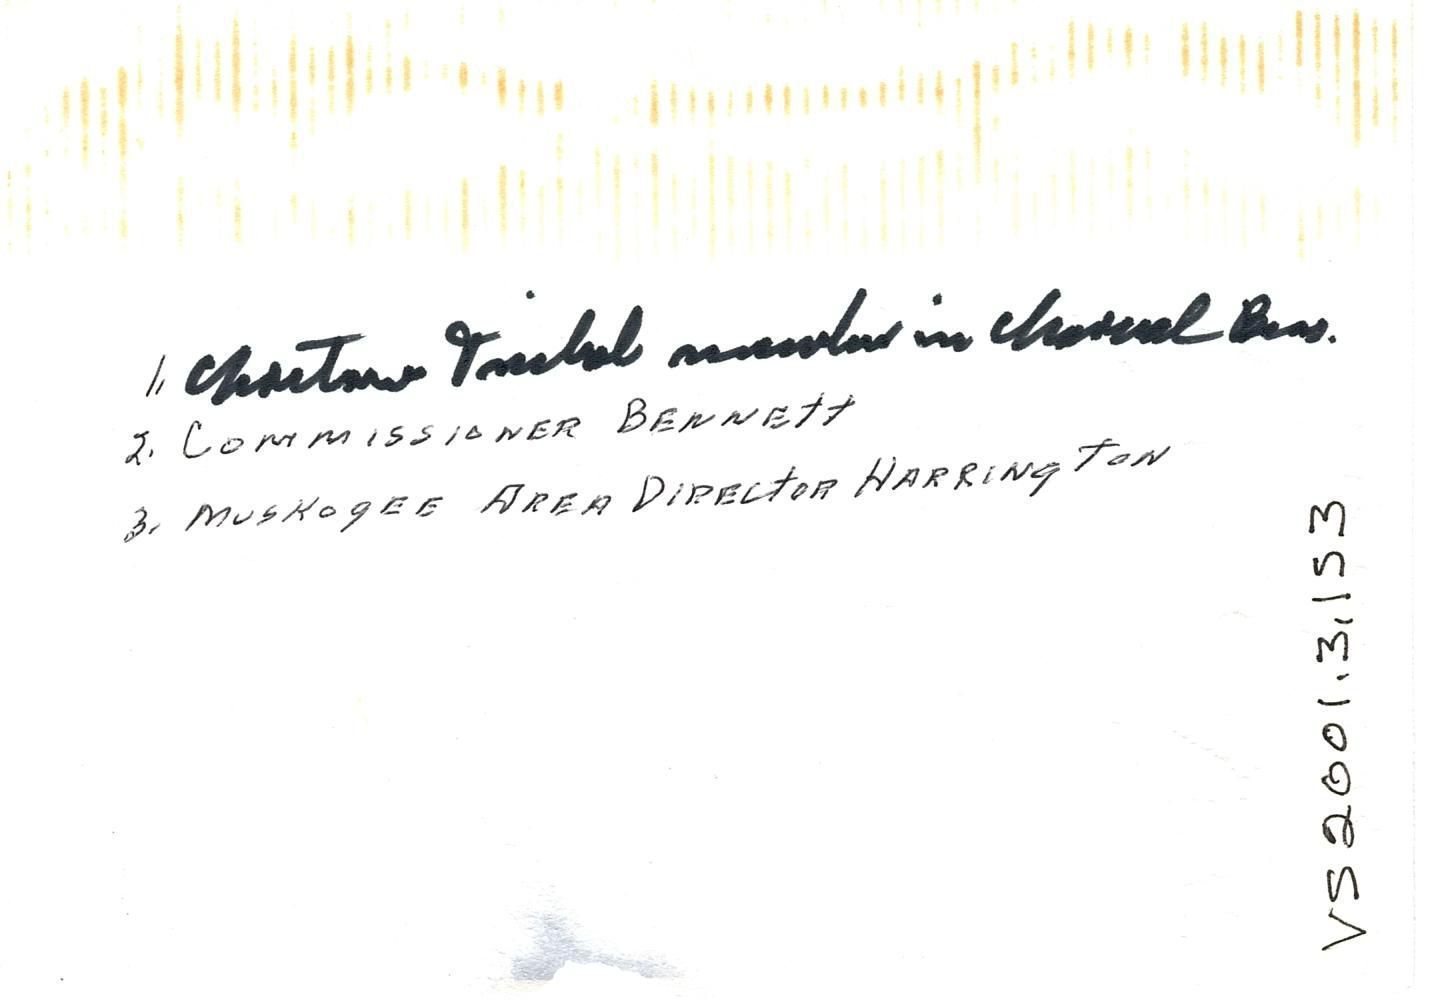 1. Choctaw Tribal member in Bus.
2. COMMISSIONER BENNETT
3. MUSKOGEE AREA DIRECTOR HARRINGTON
VS2001.3.153